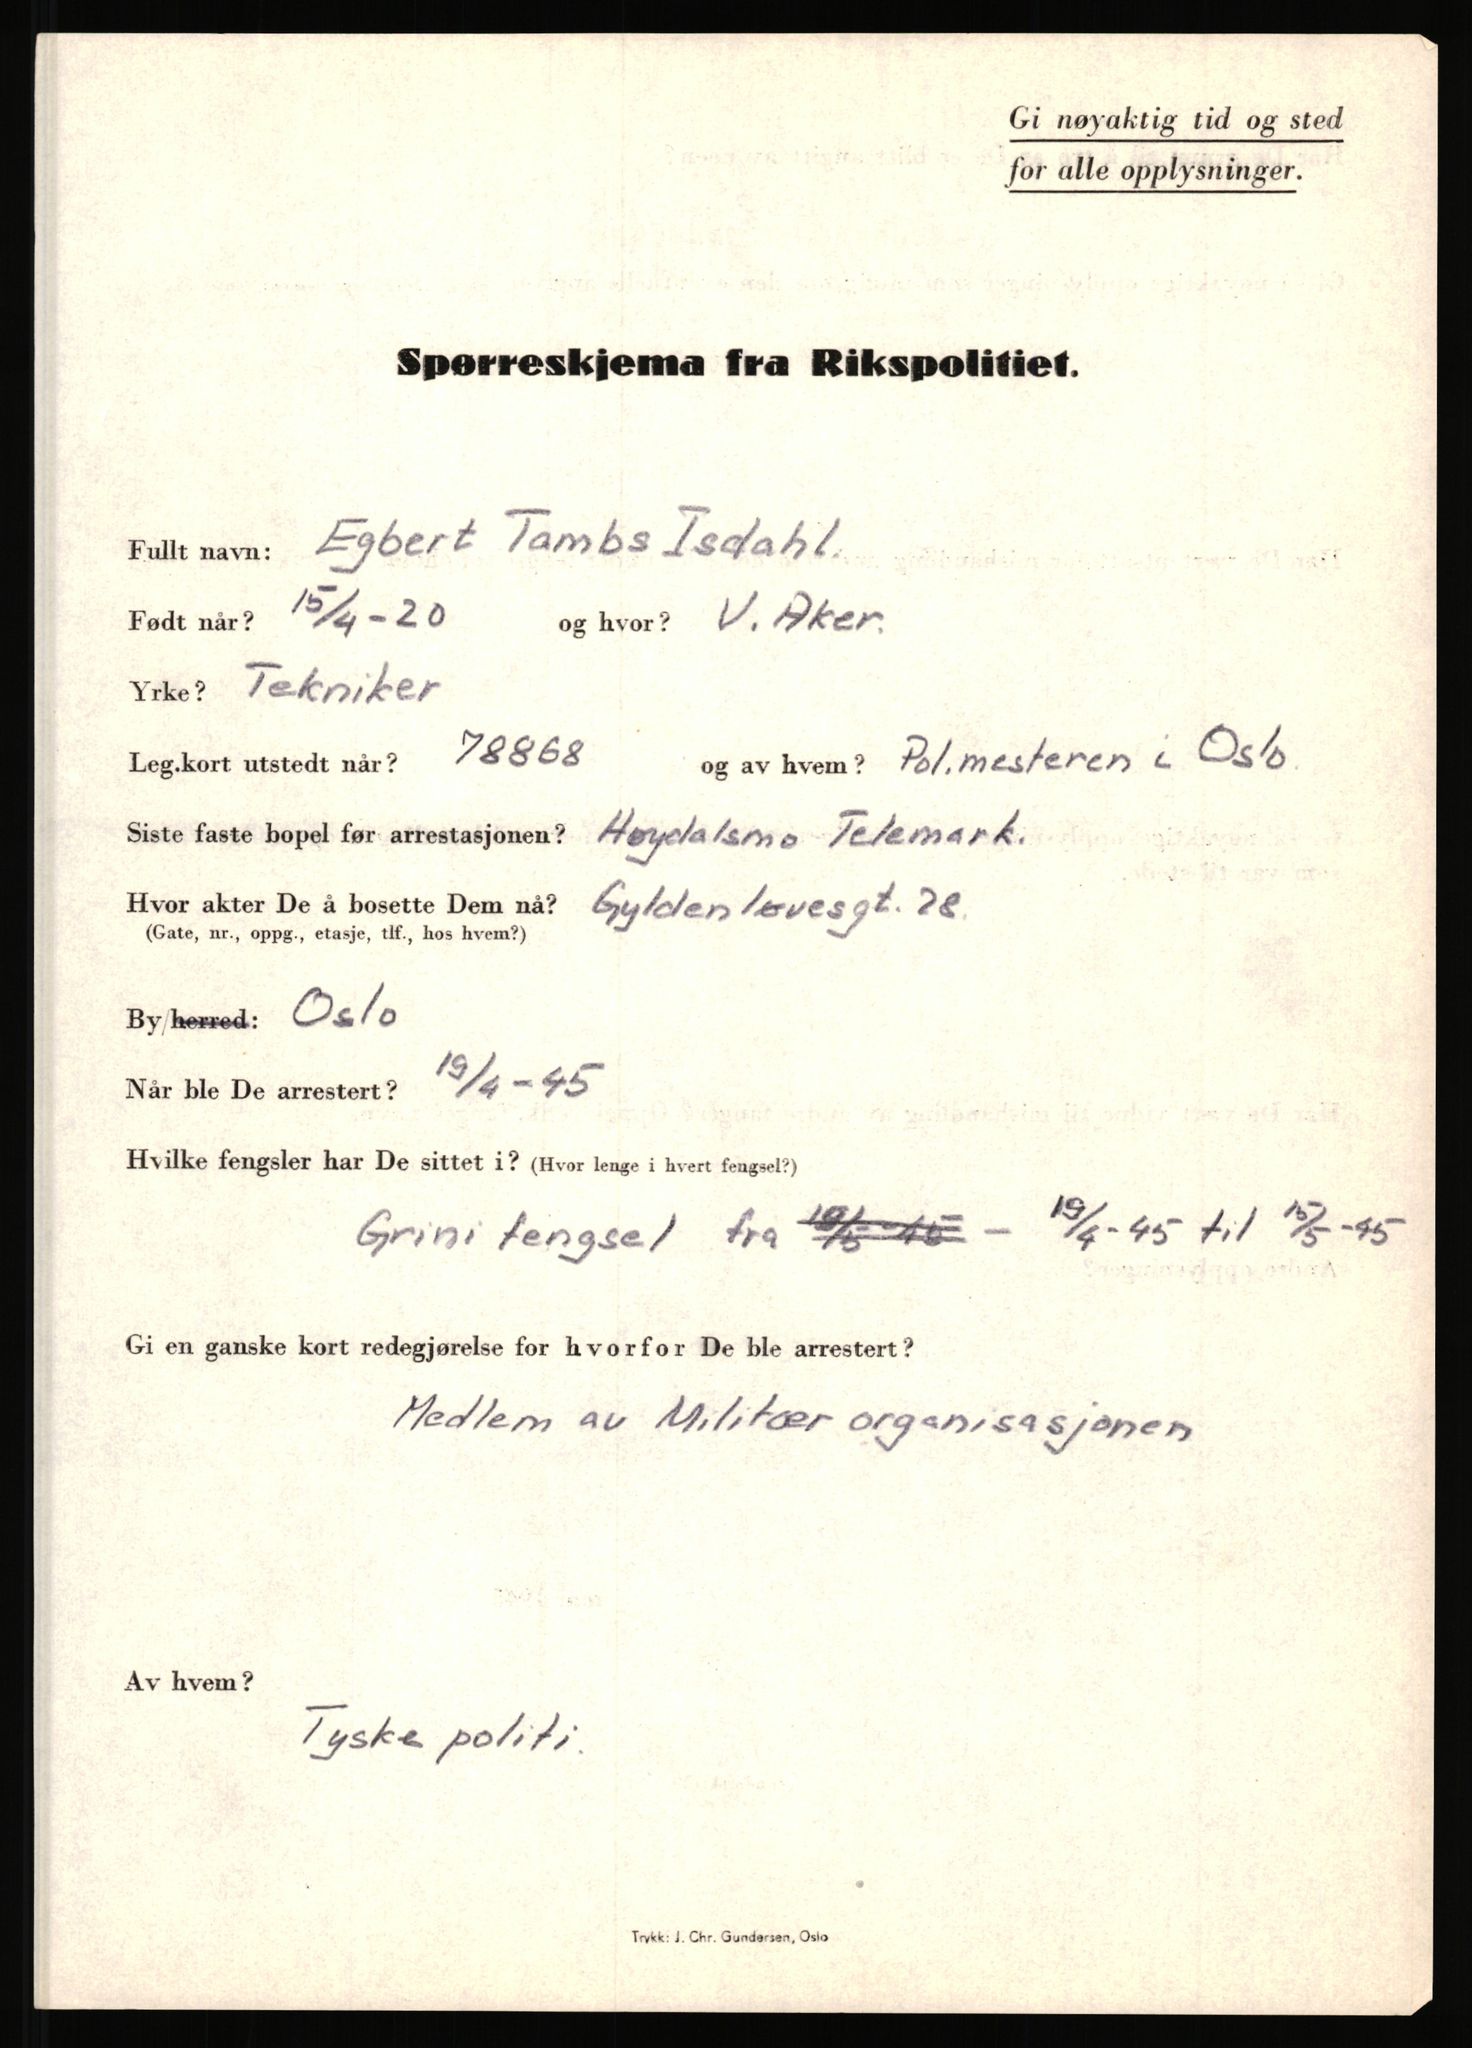 Gi nøyaktig tid og sted
for alle opplysninger.
Spørreskjema fra Rikspolitiet.
Fullt navn: Egbert Tambs Isdahl.
Født når? 15/4-20 og hvor? V. Aker.
Yrke? Tekniker
Leg.kort utstedt når? 78868 og av hvem? Pol.mesteren i Oslo.
Siste faste bopel før arrestasjonen? Høydalsmo Telemark.
Hvor akter De å bosette Dem nå? Gyldenløvesgt. 28.
(Gate, nr., oppg., etasje, tlf., hos hvem?)
By/herred: Oslo
Når ble De arrestert? 19/4-45
Hvilke fengsler har De sittet i? (Hvor lenge i hvert fengsel?)
Grini fengsel fra - 19/4-45 til 15/5-45
Gi en ganske kort redegjørelse for hvorfor De ble arrestert?
Medlem av Militær organisasjonen
Av hvem?
Tyske politi.
Trykk: J. Chr. Gundersen, Oslo